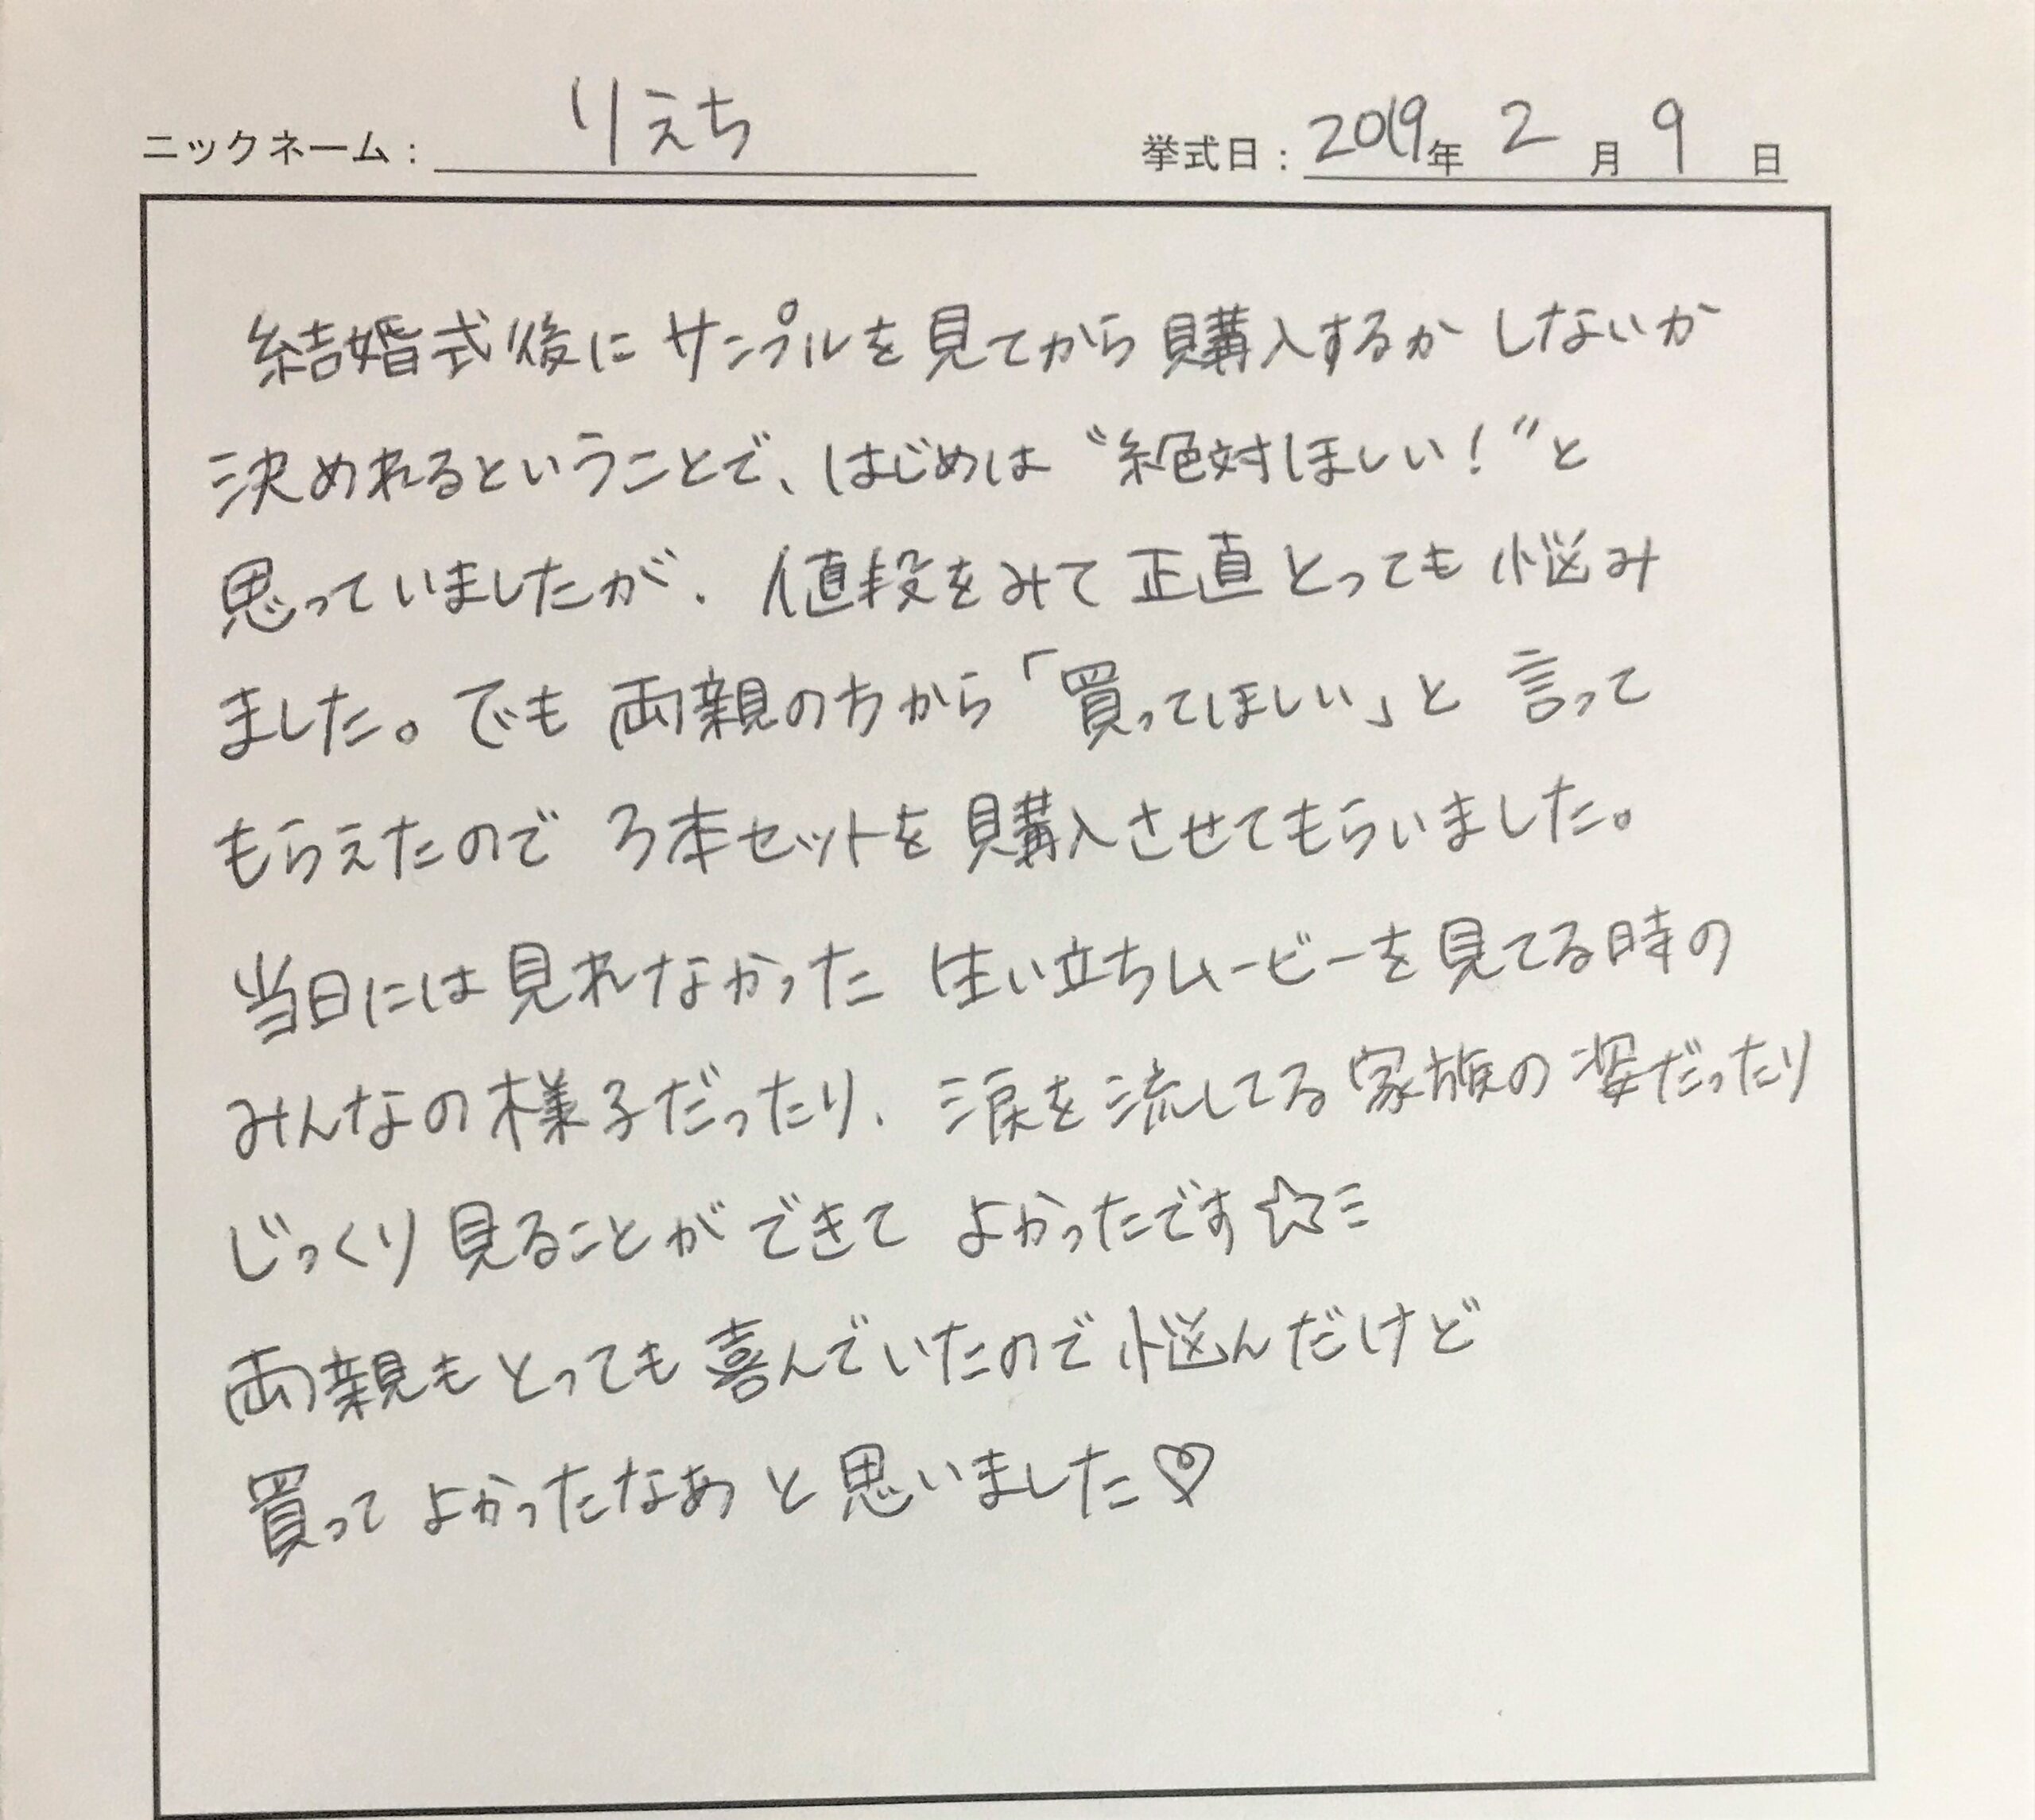 ニックネーム： りえち 挙式日：2019年 2月 9日
結婚式後に サンプルを 見てから 購入するか しないか
決めれるということで、はじめは “絶対ほしい！”と
思っていましたが、値段をみて 正直 とっても 悩み
ました。でも 両親の方から「買ってほしい」と 言って
もらえたので 3本セットを 購入させてもらいました。
当日には 見れなかった 生い立ちムービーを 見てる時の
みんなの様子だったり、涙を流してる 家族の 姿だったり
じっくり 見ることが できて よかったです☆ミ
両親も とっても 喜んでいたので 悩んだけど
買って よかったなあ と 思いました♡